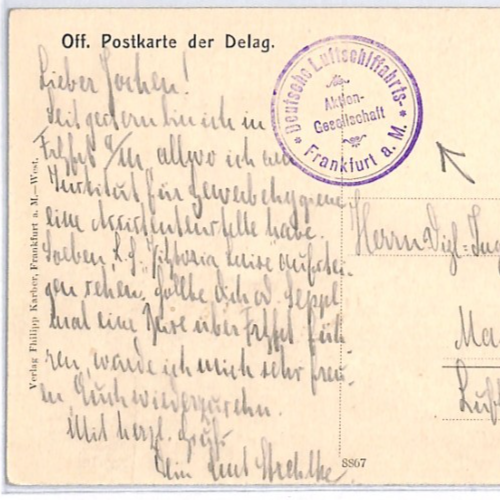 Off. Postkarte der Delag.
Deutsche Luftschiffahrts-
Aktien-
Gesellschaft
Frankfurt a. M.
Lieber Jochen!
Seit gestern bin ich in
Frkft a/M, allwo ich am
Institut für Gewerbehygiene
eine Assistentenstelle habe.
Soeben L. S. „Viktoria Luise“ aufstei-
gen sehen. Sollte Dich od. Seppl
mal eine Reise über Frkft füh-
ren, würde ich mich sehr freu-
en Euch wiederzusehn.
Mit herzl. Gruß
Dein
Herrn Dipl=Ing
Ma
Luft
Verlag Philipp Karber, Frankfurt a. M.—West.
8867